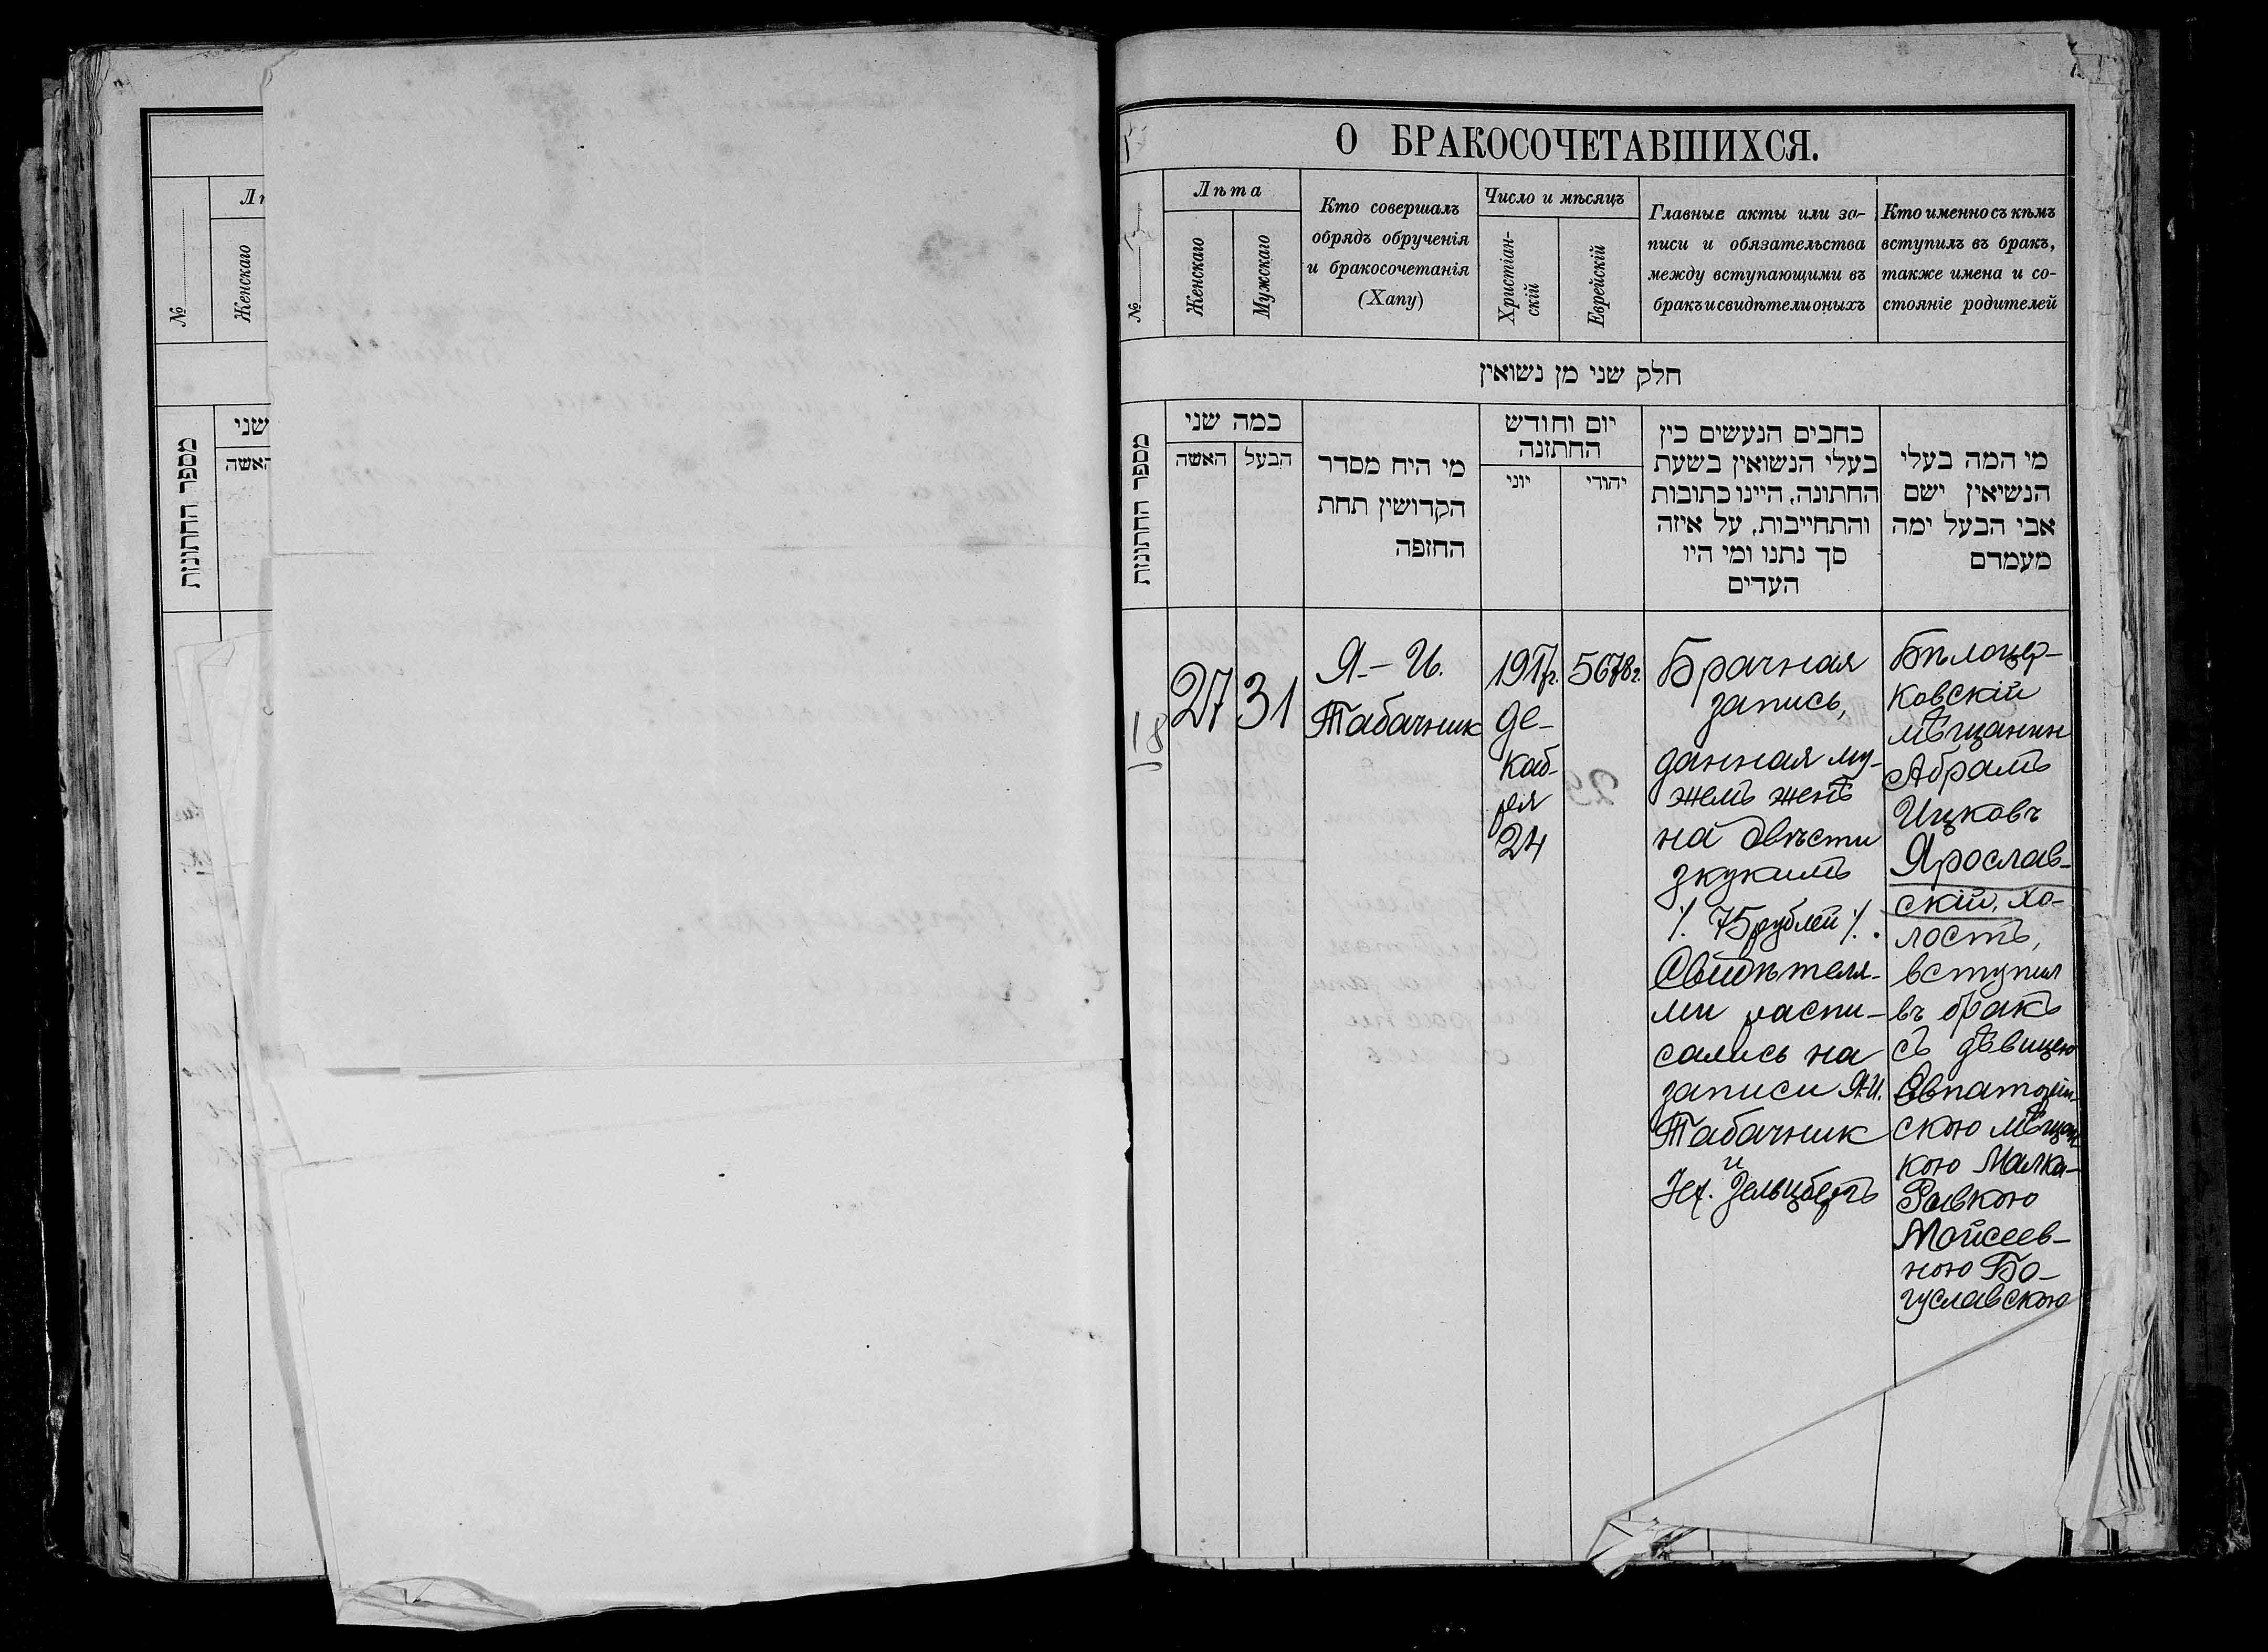 №
Женскаго
מספר החתונות
שני
האשה
О БРАКОСОЧЕТАВШИХСЯ.
№
Лѣта
Женскаго
Мужскаго
Кто совершалъ
обрядъ обрученія
и бракосочетанія
(Хапу)
Число и мѣсяцъ
Христіан-
скій
Еврейскій
Главные акты или за-
писи и обязательства
между вступающими въ
бракъ и свидѣтели оныхъ
Кто именно съ кѣмъ
вступилъ въ бракъ,
также имена и со-
стояніе родителей
חלק שני מן נשואין
מספר החתונות
כמה שני
האשה
הבעל
מי היח מסדר
הקדושין תחת
החזפה
יום וחודש
החתזנה
יוני
יהודי
כחבים הנעשים כין
בעלי הנשואין בשעת
החתונה, היינו כתובות
והתחייבות, על איזה
סך נתנו ומי היו
העדים
מי המה בעלי
הנשיאין ישם
אבי הבעל ימה
מעמדם
18
27
31
Я.-И.
Табачник
1917г.
де-
каб-
ря
24
5678г.
Брачная
запись,
данная му-
жемъ женѣ
на двѣсти
зкукимъ
/. 75 рублей /.
Свидѣтеля-
ми распи-
сались на
записи Я.И.
Табачник
и
Зельцбергъ
Бѣлоцер-
ковскій
мѣщанин
Абрамъ
Ицковъ
Ярослав-
скій, хо-
лостъ,
вступил
въ бракъ
съ дѣвицею
Евпаторій-
скою мѣщан
кою Малка-
Ривкою
Мойсеев-
ною Бо-
гуславскою